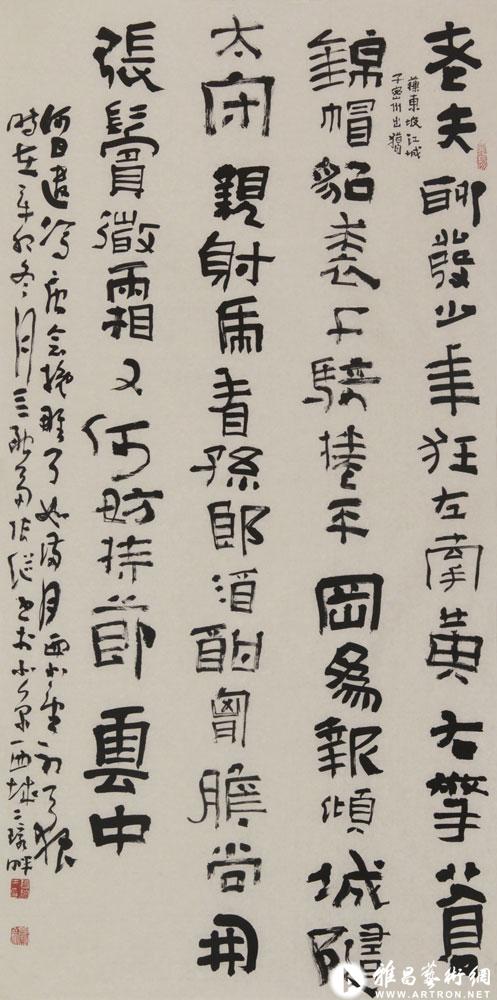 老夫聊發少年狂左牽黃右擎蒼
錦帽貂裘千騎捲平岡為報傾城隨
太守親射虎看孫郎酒酣胸膽尚開
張鬢微霜又何妨持節雲中
何日遣馮唐會挽雕弓如滿月西北望射天狼
時在辛卯冬月三耻齋張継書於北京西城二環畔
蘇東坡江城
子密州出獵
雅昌藝術網
WWW.ARTRON.NET